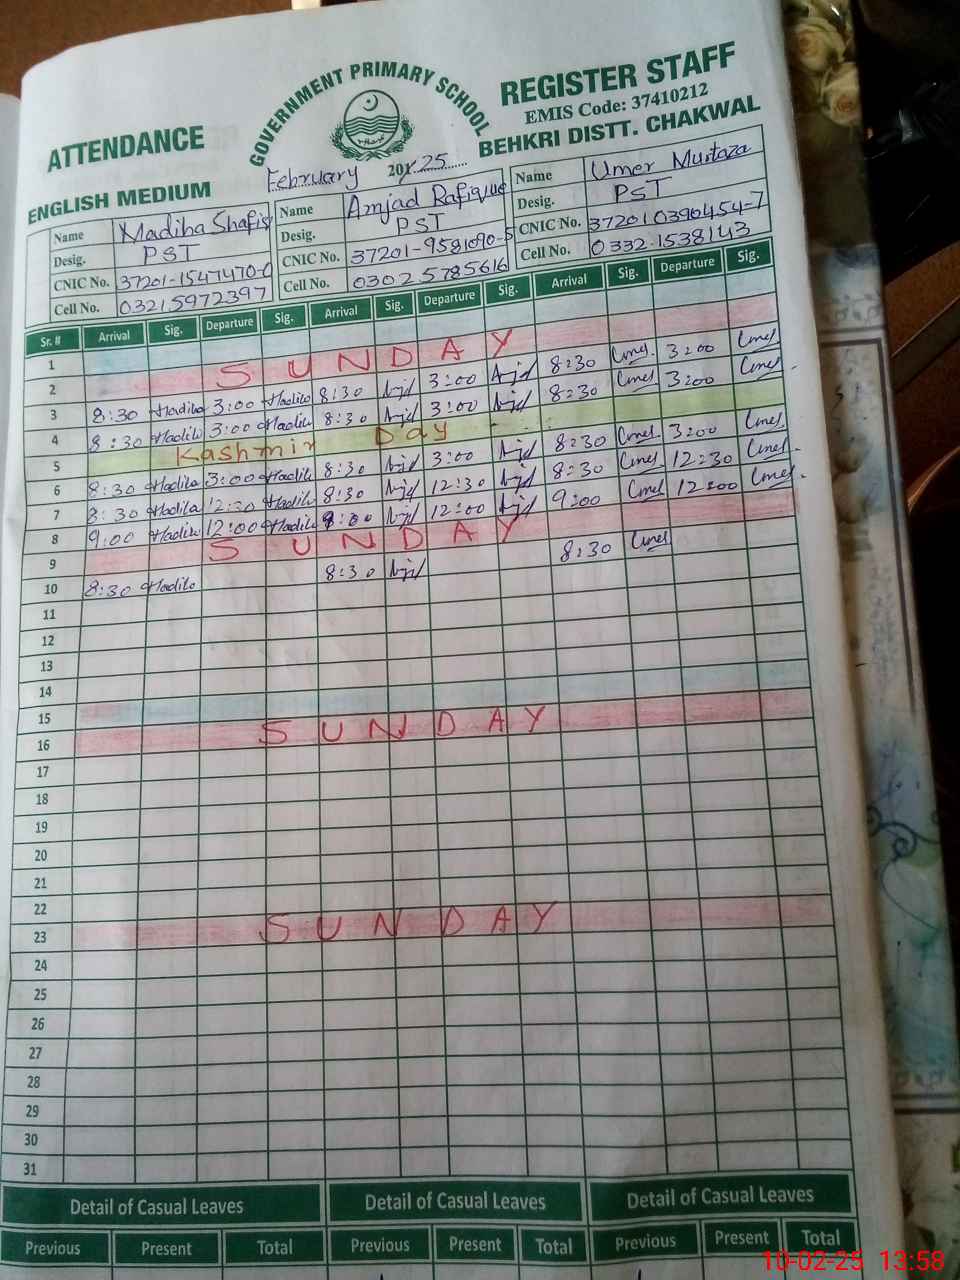 GOVERNMENT PRIMARY SCHOOL
ATTENDANCE REGISTER STAFF
EMIS Code: 37410212
ENGLISH MEDIUM February 2025 BEHKRI DISTT. CHAKWAL
Name Madiha Shafiq Name Amjad Rafique Name Umer Murtaza
Desig. PST Desig. PST Desig. PST
CNIC No. 37201-1547470-0 CNIC No. 37201-9581090-5 CNIC No. 37201 0390454-7
Cell No. 0321 5972397 Cell No. 0302 5785616 Cell No. 0332 1538143
Sr. # Arrival Sig. Departure Sig. Arrival Sig. Departure Sig. Arrival Sig. Departure Sig.
1
2 SUNDAY
3 8:30 Madiha 3:00 Madiha 8:30 Ajd 3:00 Ajd 8:30 Umer 3:00 Umer
4 8:30 Madiha 3:00 Madiha 8:30 Ajd 3:00 Ajd 8:30 Umer 3:00 Umer
5 Kashmir Day
6 8:30 Madiha 3:00 Madiha 8:30 Ajd 3:00 Ajd 8:30 Umer 3:00 Umer
7 8:30 Madiha 12:30 Madiha 8:30 Ajd 12:30 Ajd 8:30 Umer 12:30 Umer
8 9:00 Madiha 12:00 Madiha 9:00 Ajd 12:00 Ajd 9:00 Umer 12:00 Umer
9 SUNDAY
10 8:30 Madiha 8:30 Ajd 8:30 Umer
11
12
13
14
15
16 SUNDAY
17
18
19
20
21
22
23 SUNDAY
24
25
26
27
28
29
30
31
Detail of Casual Leaves Detail of Casual Leaves Detail of Casual Leaves
Previous Present Total Previous Present Total Previous Present Total
10-02-25 13:58